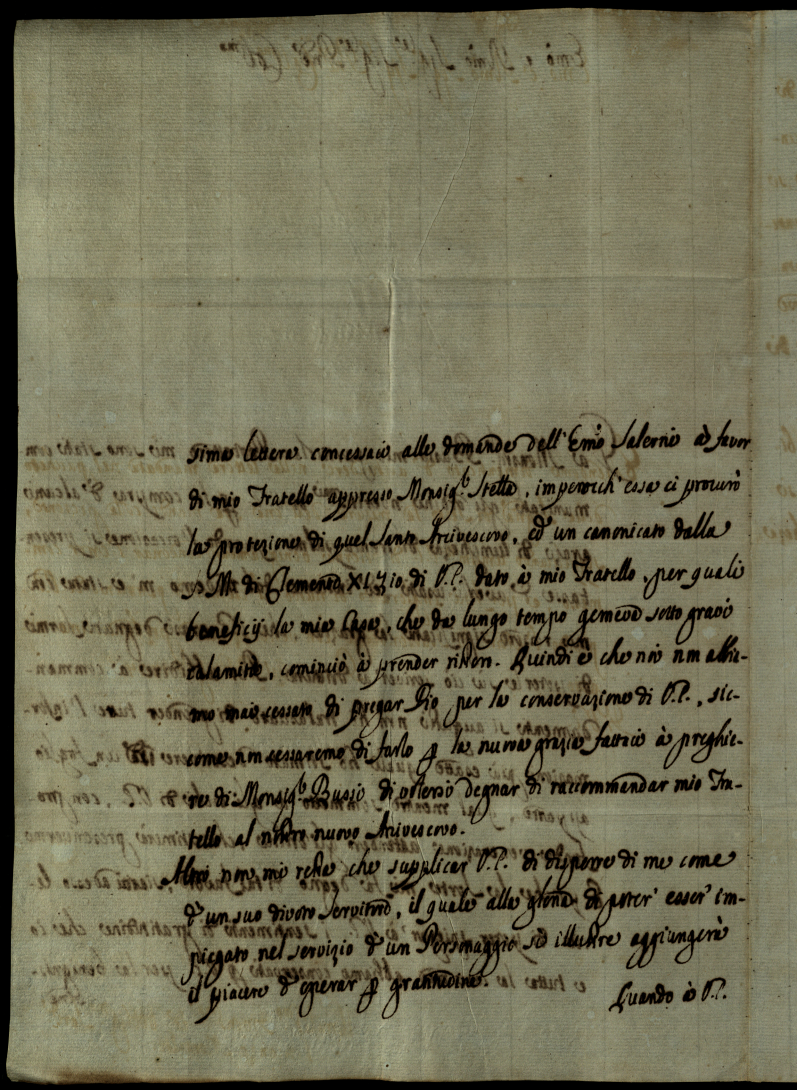 tima lettera concessaci alle domande dell'Emo Salerni à favor
di mio Fratello appresso Monsig.r Stella, imperocch'essa ci procurò
la protezione di quel Santo Arcivescovo, ed un canonicato dalla
S. M. di Clemente XI Zio di V.E. dato à mio Fratello, per quali
beneficij la mia Casa, che da lungo tempo gemeva sotto gravi
calamità, cominciò à prender ristoro. Quindi è che noi non abbia-
mo mai cessato di pregar Dio per la conservazione di V.E., sic-
come non cessaremo di farlo p la nuova grazia fattaci à preghie-
re di Monsig.r Bussi di volersi degnar di raccommandar mio Fra-
tello al nostro nuovo Arcivescovo.
Altro non mi resta che supplicar V.E. di disporre di me come
d'un suo divoto Servitore, il quale alla gloria di poter' esser' im-
piegato nel servizio d'un Personaggio sì illustre aggiungerà
il piacere d'operar p gratitudine.
Quando à V.E.